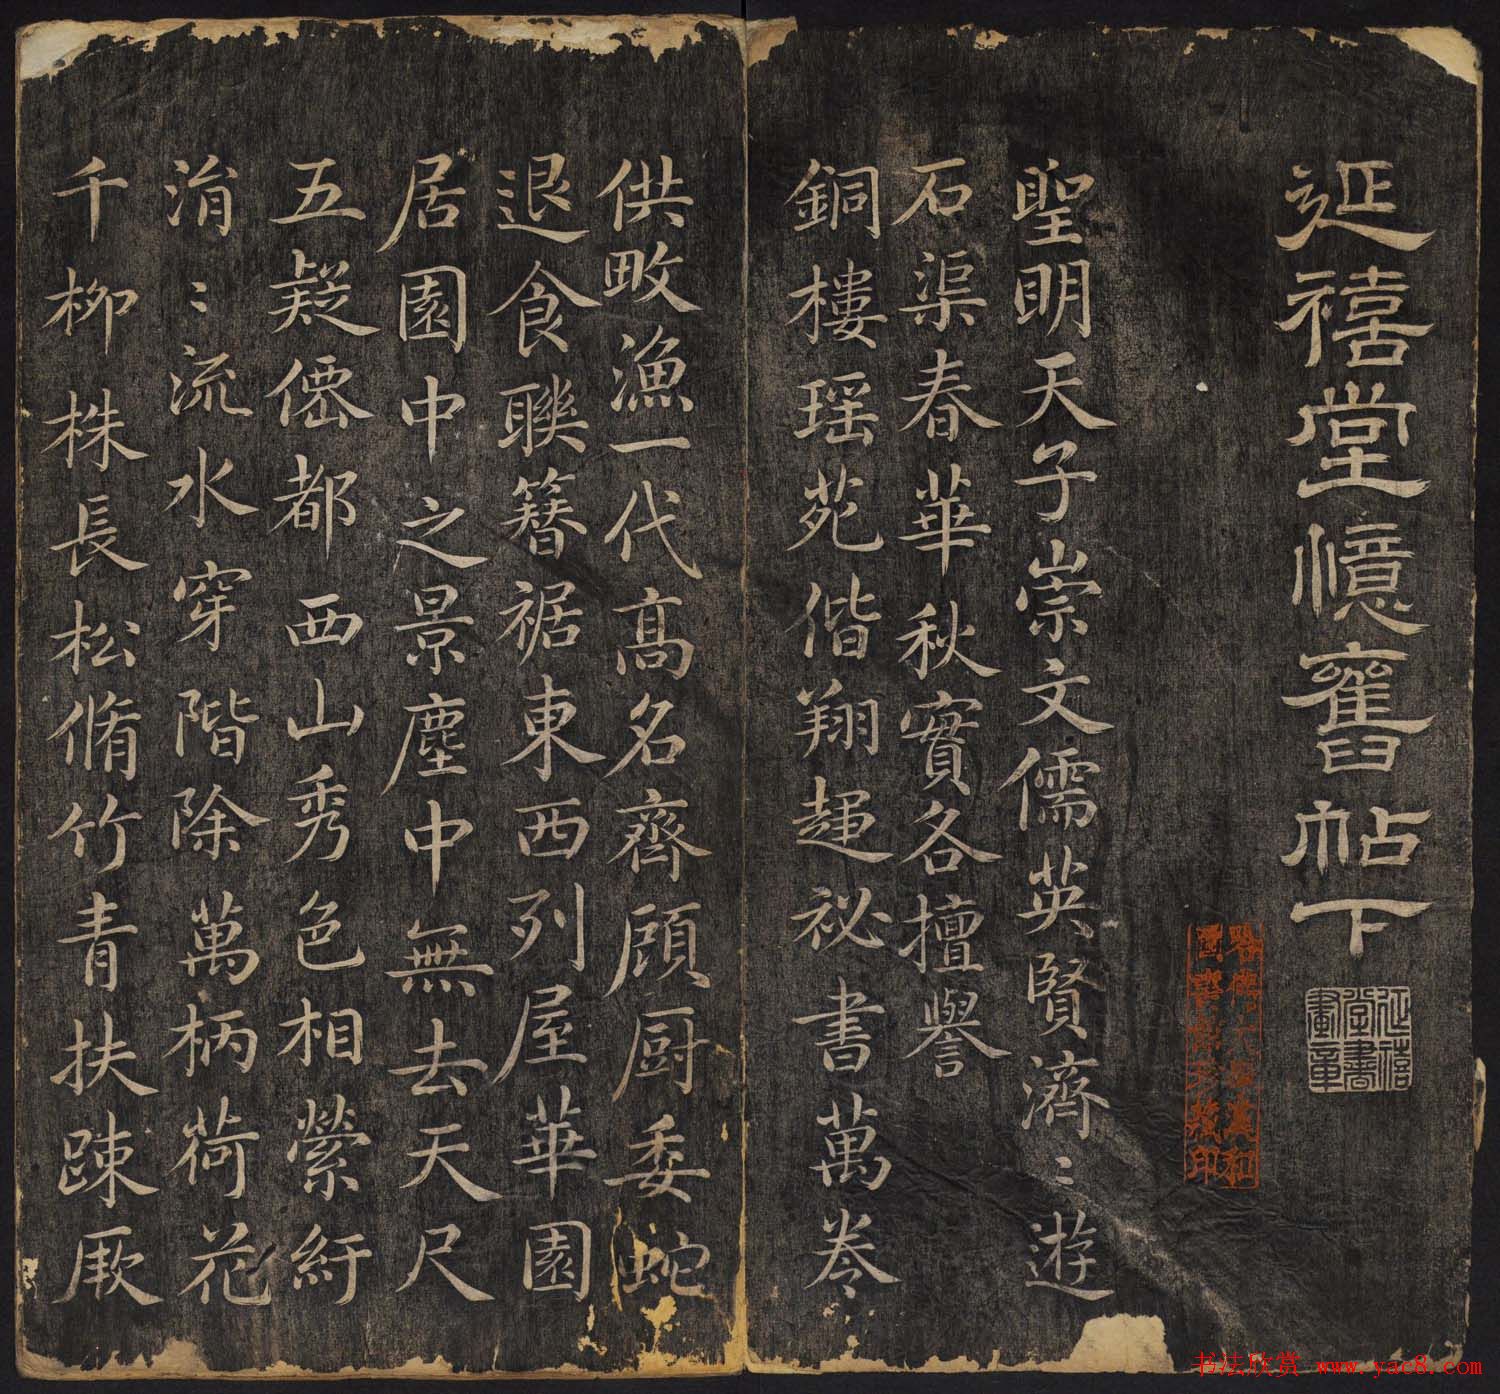 延禧堂憶舊帖下
延禧堂書畫章
聖明天子崇文儒英賢濟〻遊
石渠春華秋實各擅譽
銅樓瑶苑偕翔趯祕書萬卷
供畋漁一代高名齊顧厨委蛇
退食聯簪裾東西列屋華園
居園中之景塵中無去天尺
五疑僊都西山秀色相縈紆
涓〻流水穿階除萬柄荷花
千柳株長松脩竹青扶踈厥
书法欣赏 www.yac8.com